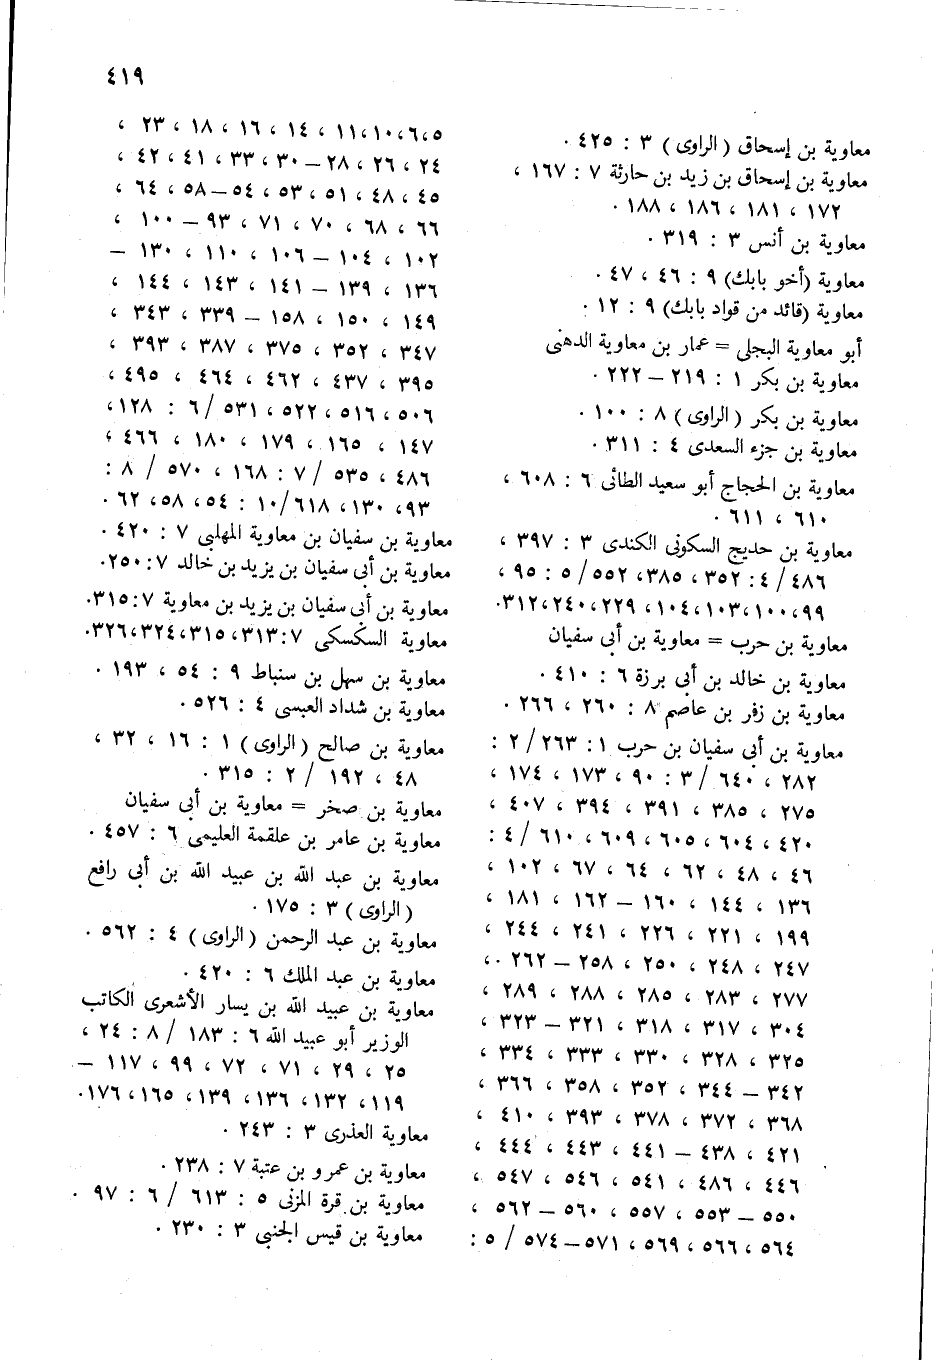 ٤١٩
معاوية بن إسحاق ( الراوى ) ٣ : ٤٢٥ .
معاوية بن إسحاق بن زيد بن حارثة ٧ : ١٦٧ ،
١٧٢ ، ١٨١ ، ١٨٦ ، ١٨٨ .
معاوية بن أنس ٣ : ٣١٩ .
معاوية (أخو بابك) ٩ : ٤٦ ، ٤٧ .
معاوية (قائد من قواد بابك) ٩ : ١٢ .
أبو معاوية البجلى = عمار بن معاوية الدهنى
معاوية بن بكر ١ : ٢١٩ – ٢٢٢ .
معاوية بن بكر ( الراوى ) ٨ : ١٠٠ .
معاوية بن جزء السعدى ٤ : ٣١١ .
معاوية بن الحجاج أبو سعيد الطائى ٦ : ٦٠٨ ،
٦١٠ ، ٦١١ .
معاوية بن حديج السكونى الكندى ٣ : ٣٩٧ ،
٤٨٦ / ٤ : ٣٥٢ ، ٣٨٥ ، ٥٥٢ / ٥ : ٩٥ ،
٩٩ ، ١٠٠ ، ١٠٣ ، ١٠٤ ، ٢٢٩ ، ٢٤٠ ، ٣١٢ .
معاوية بن حرب = معاوية بن أبى سفيان
معاوية بن خالد بن أبى برزة ٦ : ٤١٠ .
معاوية بن زفر بن عاصم ٨ : ٢٦٠ ، ٢٦٦ .
معاوية بن أبى سفيان بن حرب ١ : ٢٦٣ / ٢ :
٢٨٢ ، ٦٤٠ / ٣ : ٩٠ ، ١٧٣ ، ١٧٤ ،
٢٧٥ ، ٣٨٥ ، ٣٩١ ، ٣٩٤ ، ٤٠٧ ،
٤٢٠ ، ٦٠٤ ، ٦٠٥ ، ٦٠٩ ، ٦١٠ / ٤ :
٤٦ ، ٤٨ ، ٦٢ ، ٦٤ ، ٦٧ ، ١٠٢ ،
١٣٦ ، ١٤٤ ، ١٦٠ – ١٦٢ ، ١٨١ ،
١٩٩ ، ٢٢١ ، ٢٢٦ ، ٢٤١ ، ٢٤٤ ،
٢٤٧ ، ٢٤٨ ، ٢٥٠ ، ٢٥٨ – ٢٦٢ ،
٢٧٧ ، ٢٨٣ ، ٢٨٥ ، ٢٨٨ ، ٢٨٩ ،
٣٠٤ ، ٣١٧ ، ٣١٨ ، ٣٢١ – ٣٢٣ ،
٣٢٥ ، ٣٢٨ ، ٣٣٠ ، ٣٣٣ ، ٣٣٤ ،
٣٤٢ – ٣٤٤ ، ٣٥٢ ، ٣٥٨ ، ٣٦٦ ،
٣٦٨ ، ٣٧٢ ، ٣٧٨ ، ٣٩٣ ، ٤١٠ ،
٤٢١ ، ٤٣٨ – ٤٤١ ، ٤٤٣ ، ٤٤٤ ،
٤٤٦ ، ٤٨٦ ، ٥٤١ ، ٥٤٦ ، ٥٤٧ ،
٥٥٠ – ٥٥٣ ، ٥٥٧ ، ٥٦٠ – ٥٦٢ ،
٥٦٤ ، ٥٦٦ ، ٥٦٩ ، ٥٧١ – ٥٧٤ / ٥ :
٥ ، ٦ ، ١٠ ، ١١ ، ١٤ ، ١٦ ، ١٨ ، ٢٣ ،
٢٤ ، ٢٦ ، ٢٨ – ٣٠ ، ٣٣ ، ٤١ ، ٤٢ ،
٤٥ ، ٤٨ ، ٥١ ، ٥٣ ، ٥٤ – ٥٨ ، ٦٤ ،
٦٦ ، ٦٨ ، ٧٠ ، ٧١ ، ٩٣ – ١٠٠ ،
١٠٢ ، ١٠٤ – ١٠٦ ، ١١٠ ، ١٣٠ –
١٣٦ ، ١٣٩ – ١٤١ ، ١٤٣ ، ١٤٤ ،
١٤٩ ، ١٥٠ ، ١٥٨ – ٣٣٩ ، ٣٤٣ ،
٣٤٧ ، ٣٥٢ ، ٣٧٥ ، ٣٨٧ ، ٣٩٣ ،
٣٩٥ ، ٤٣٧ ، ٤٦٢ ، ٤٦٤ ، ٤٩٥ ،
٥٠٦ ، ٥١٦ ، ٥٢٢ ، ٥٣١ / ٦ : ١٢٨ ،
١٤٧ ، ١٦٥ ، ١٧٩ ، ١٨٠ ، ٤٦٦ ،
٤٨٦ ، ٥٣٥ / ٧ : ١٦٨ ، ٥٧٠ / ٨ :
٩٣ ، ١٣٠ ، ٦١٨ / ١٠ : ٥٤ ، ٥٨ ، ٦٢ .
معاوية بن سفيان بن معاوية المهلبى ٧ : ٤٢٠ .
معاوية بن أبى سفيان بن يزيد بن خالد ٧ : ٢٥٠ .
معاوية بن أبى سفيان بن يزيد بن معاوية ٧ : ٣١٥ .
معاوية السكسكى ٧ : ٣١٣ ، ٣١٥ ، ٣٢٤ ، ٣٢٦ .
معاوية بن سهل بن سنباط ٩ : ٥٤ ، ١٩٣ .
معاوية بن شداد العبسى ٤ : ٥٢٦ .
معاوية بن صالح ( الراوى ) ١ : ١٦ ، ٣٢ ،
٤٨ ، ١٩٢ / ٢ : ٣١٥ .
معاوية بن صخر = معاوية بن أبى سفيان
معاوية بن عامر بن علقمة العليمى ٦ : ٤٥٧ .
معاوية بن عبد الله بن عبيد الله بن أبى رافع
( الراوى ) ٣ : ١٧٥ .
معاوية بن عبد الرحمن ( الراوى ) ٤ : ٥٦٢ .
معاوية بن عبد الملك ٦ : ٤٢٠ .
معاوية بن عبيد الله بن يسار الأشعرى الكاتب
الوزير أبو عبيد الله ٦ : ١٨٣ / ٨ : ٢٤ ،
٢٥ ، ٢٩ ، ٧١ ، ٧٢ ، ٩٩ ، ١١٧ –
١١٩ ، ١٣٢ ، ١٣٦ ، ١٣٩ ، ١٦٥ ، ١٧٦ .
معاوية العذرى ٣ : ٢٤٣ .
معاوية بن عمرو بن عتبة ٧ : ٢٣٨ .
معاوية بن قرة المزنى ٥ : ٦١٣ / ٦ : ٩٧ .
معاوية بن قيس الجنبى ٣ : ٢٣٠ .